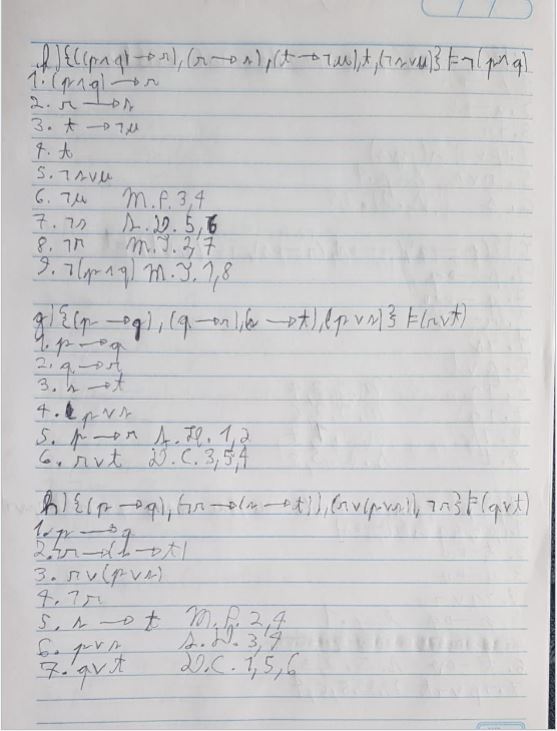 f) {((p∧q)→r), (r→s), (t→¬u), t, (¬s∨u)} ⊨ ¬(p∧q)
1. (p∧q)→r
2. r→s
3. t→¬u
4. t
5. ¬s∨u
6. ¬u M.P. 3,4
7. ¬s S.D. 5,6
8. ¬r M.T. 2,7
9. ¬(p∧q) M.T. 1,8
g) {(p→q), (q→r), (s→t), (p∨s)} ⊨ (r∨t)
1. p→q
2. q→r
3. s→t
4. p∨s
5. p→r S.H. 1,2
6. r∨t D.C. 3,5,4
h) {(p→q), (¬r→(s→t)), (r∨(p∨s)), ¬r} ⊨ (q∨t)
1. p→q
2. ¬r→(s→t)
3. r∨(p∨s)
4. ¬r
5. s→t M.P. 2,4
6. p∨s S.D. 3,4
7. q∨t D.C. 1,5,6